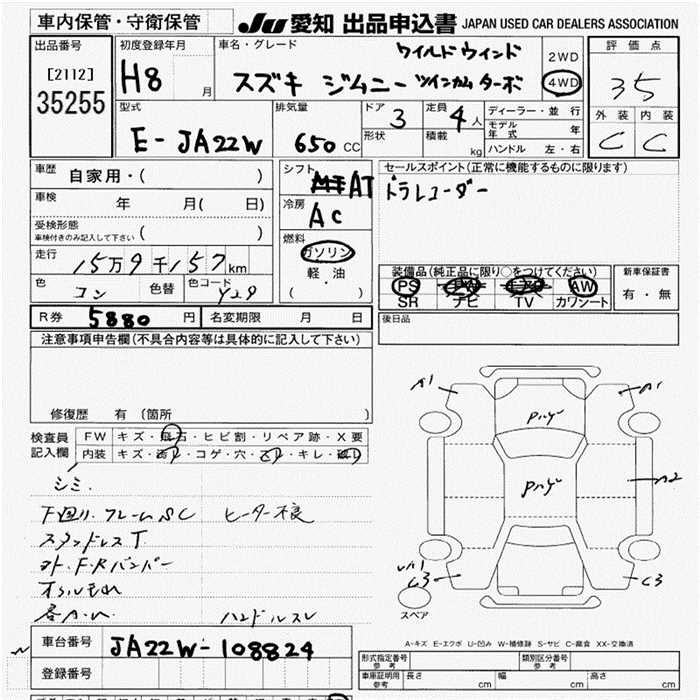 車内保管・守衛保管
JU 愛知 出品申込書 JAPAN USED CAR DEALERS ASSOCIATION
出品番号
[2112]
35255
初度登録年月
H8 月
車名・グレード
ワイルドウインド
スズキ ジムニー ツインカムターボ
2WD
4WD
評価点
35
外装 内装
C C
型式
E-JA22W
排気量
650 CC
ドア 3
形状
定員 4 人
積載 kg
ディーラー・並行
モデル年式 年
ハンドル 左・右
車歴 自家用・( )
車検 年 月( 日)
受検形態
車検付きのみ記入して下さい ( )
走行 15万9千157km
色 コン 色替 色コード Y29
シフト AT
冷房 AC
燃料
ガソリン
軽・油
( )
セールスポイント(正常に機能するものに限ります)
ドラレコーダー
装備品(純正品に限り○をつけてください)
PS AW
SR ナビ TV カワシート
新車保証書
有・無
R券 5880円 名変期限 月 日
後日品
注意事項申告欄(不具合内容等は具体的に記入して下さい)
修復歴 有 (箇所 )
検査員記入欄
FW キズ・飛石・ヒビ割・リペア跡・X要
内装 キズ・コゲ・穴・キレ・
シミ
下回り. フレームSC ヒーター不良
スタンドレスT
外. F.Rバンパー
オイルもれ
ハンドルスレ
A1 A1
Pハゲ
Pハゲ
A2
C3 C3
スペア
A-キズ E-エクボ U-凹み W-補修跡 S-サビ C-腐食 XX-交換済
車台番号 JA22W-108824
登録番号
形式指定番号 参考
類別区分番号 参考
車庫証明用 参考 長さ cm 幅 cm 高さ cm